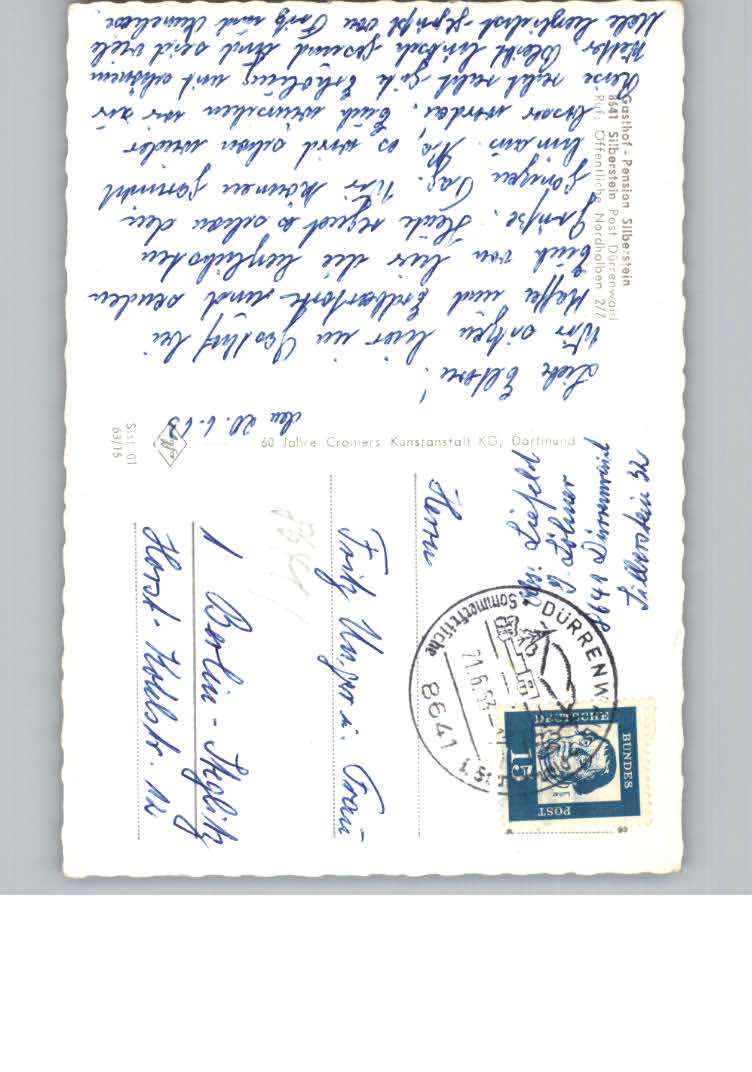 Gasthof - Pension Silberstein
8641 Silberstein Post Dürrenwaid
Ruf: Öffentliche Nordhalben 2/7
den 20.6.63
Liebe Eltern!
Wir sitzen hier im Gasthof bei
Kaffee und Erdbeertorte und senden
Euch von hier die herzlichsten
Grüße. Heute regnet es schon den
ganzen Tag. Wir können
es wird schon wieder
besser werden. Euch wünschen wir
recht gute Erholung und schönes
Wetter. Bleibt hübsch gesund und seid viele
Male herzlichst gegrüßt von Fritz und
60 Jahre Cramers Kunstanstalt KG, Dortmund
Sist 01
63/15
Abs: Liefeld
8641 Dürrenwaid
Silberstein 32
Herrn
Fritz Unger u. Frau
1 Berlin - Steglitz
Horst-Kohlstr. 12
DÜRRENW
Sommerfrische
8641
21.6.63
DEUTSCHE
BUNDES
POST
15